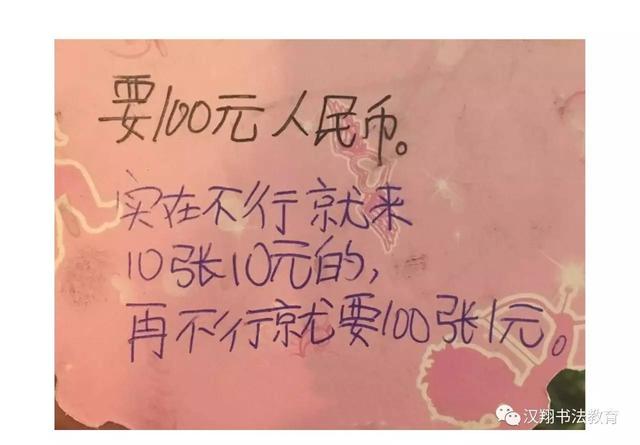 要100元人民币。
实在不行就来
10张10元的,
再不行就要100张1元。
汉翔书法教育